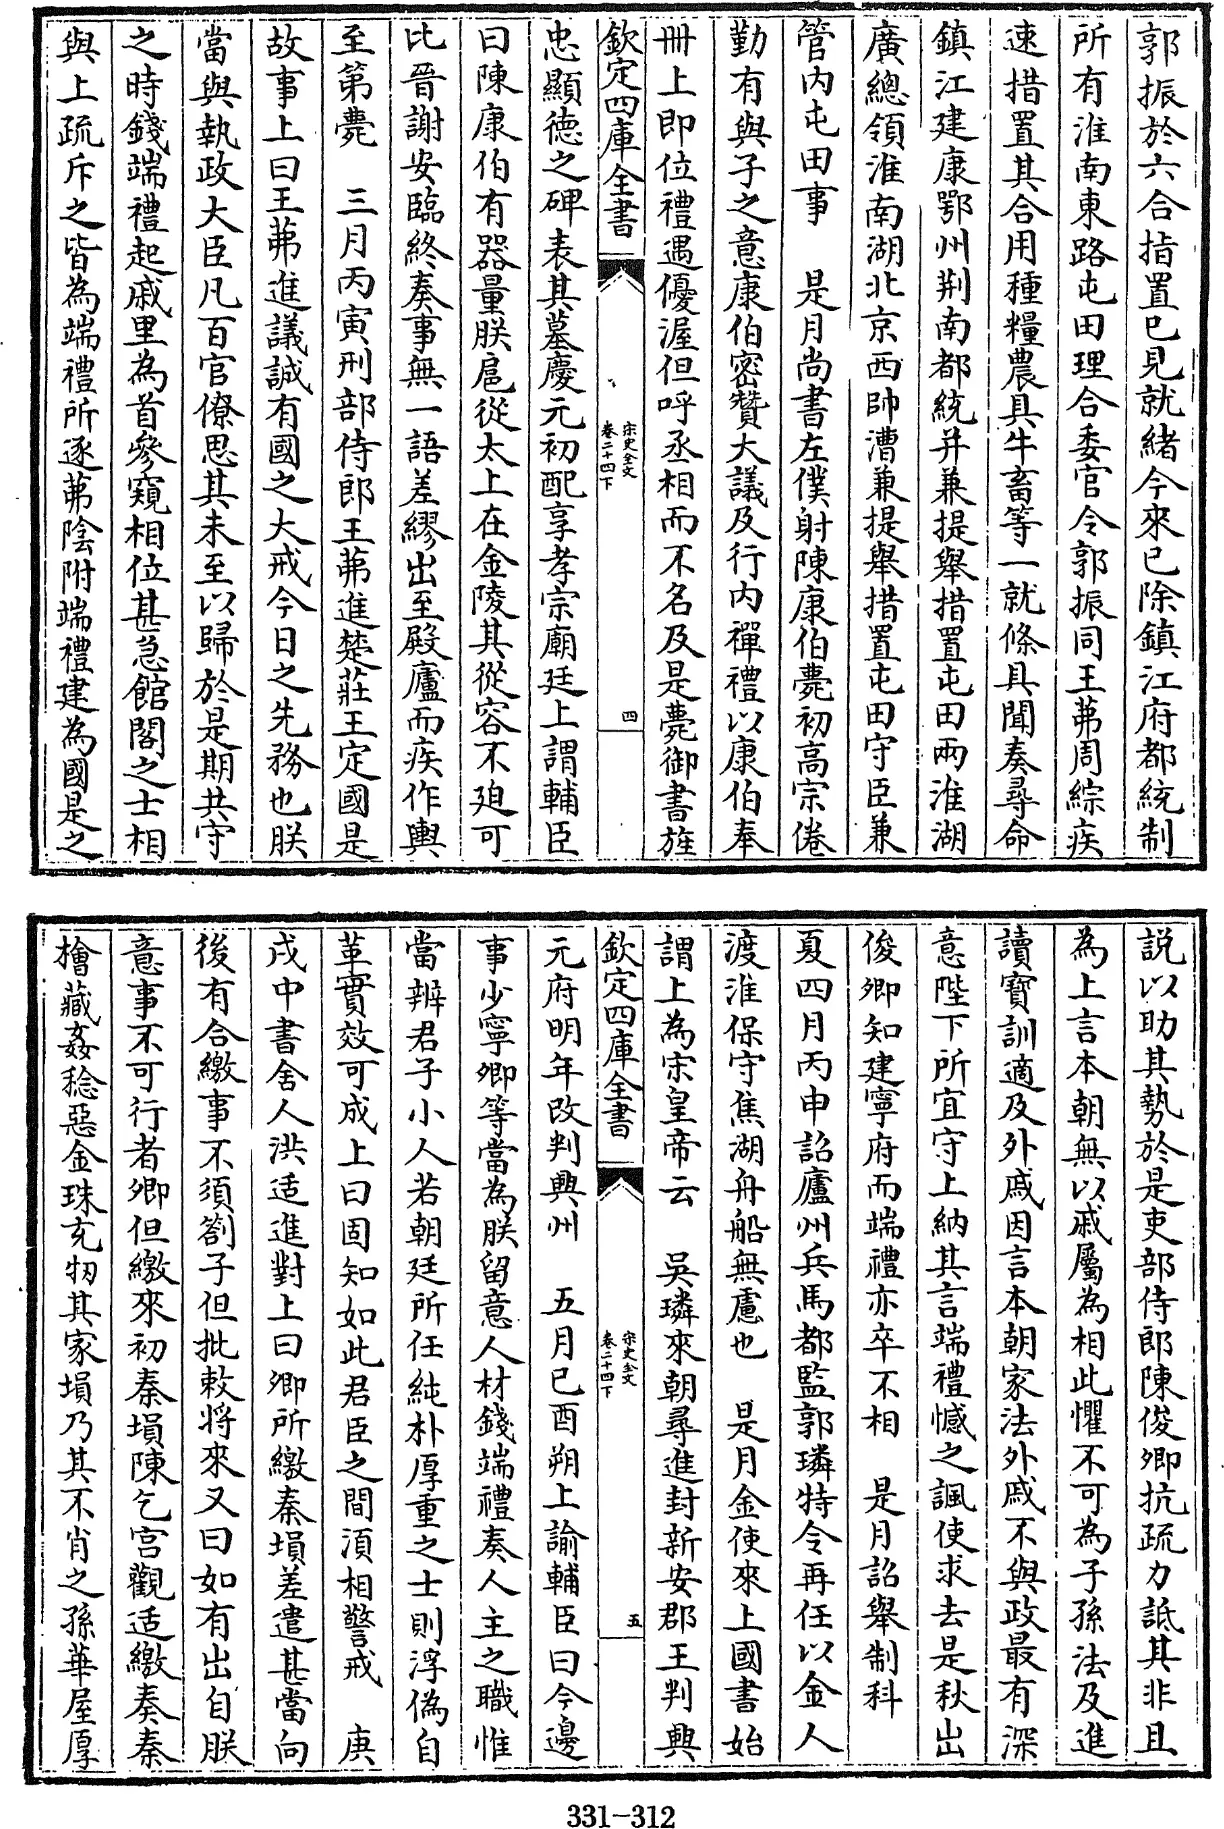 郭振於六合措置已見就緒今來已除鎮江府都統制
所有淮南東路屯田理合委官令郭振同王茀周綜疾
速措置其合用種糧農具牛畜等一就條具聞奏尋命
鎮江建康鄂州荆南都統并兼提舉措置屯田兩淮湖
廣總領淮南湖北京西帥漕兼提舉措置屯田守臣兼
管内屯田事　是月尚書左僕射陳康伯薨初高宗倦
勤有與子之意康伯密贊大議及行内禪禮以康伯奉
冊上即位禮遇優渥但呼丞相而不名及是薨御書旌
欽定四庫全書
宋史全文
卷二十四下
四
忠顯德之碑表其墓慶元初配享孝宗廟廷上謂輔臣
曰陳康伯有器量朕扈從太上在金陵其從容不廹可
比晉謝安臨終奏事無一語差繆出至殿廬而疾作輿
至第薨　三月丙寅刑部侍郎王茀進楚莊王定國是
故事上曰王茀進議誠有國之大戒今日之先務也朕
當與執政大臣凡百官僚思其未至以歸於是期共守
之時錢端禮起戚里為首參窺相位甚急館閣之士相
與上疏斥之皆為端禮所逐茀陰附端禮建為國是之
説以助其勢於是吏部侍郎陳俊卿抗疏力詆其非且
為上言本朝無以戚屬為相此懼不可為子孫法及進
讀寳訓適及外戚因言本朝家法外戚不與政最有深
意陛下所宜守上納其言端禮憾之諷使求去是秋出
俊卿知建寧府而端禮亦卒不相　是月詔舉制科
夏四月丙申詔廬州兵馬都監郭璘特令再任以金人
渡淮保守焦湖舟船無慮也　是月金使來上國書始
謂上為宋皇帝云　吳璘來朝尋進封新安郡王判興
欽定四庫全書
宋史全文
卷二十四下
五
元府明年改判興州　五月己酉朔上諭輔臣曰今邊
事少寧卿等當為朕留意人材錢端禮奏人主之職惟
當辨君子小人若朝廷所任純朴厚重之士則浮偽自
革實效可成上曰固知如此君臣之間湏相警戒　庚
戌中書舍人洪适進對上曰卿所繳秦塤差遣甚當向
後有合繳事不須劄子但批敕將來又曰如有出自朕
意事不可行者卿但繳來初秦塤陳乞宫觀适繳奏秦
檜藏姦稔惡金珠充牣其家塤乃其不肖之孫華屋厚
331-312